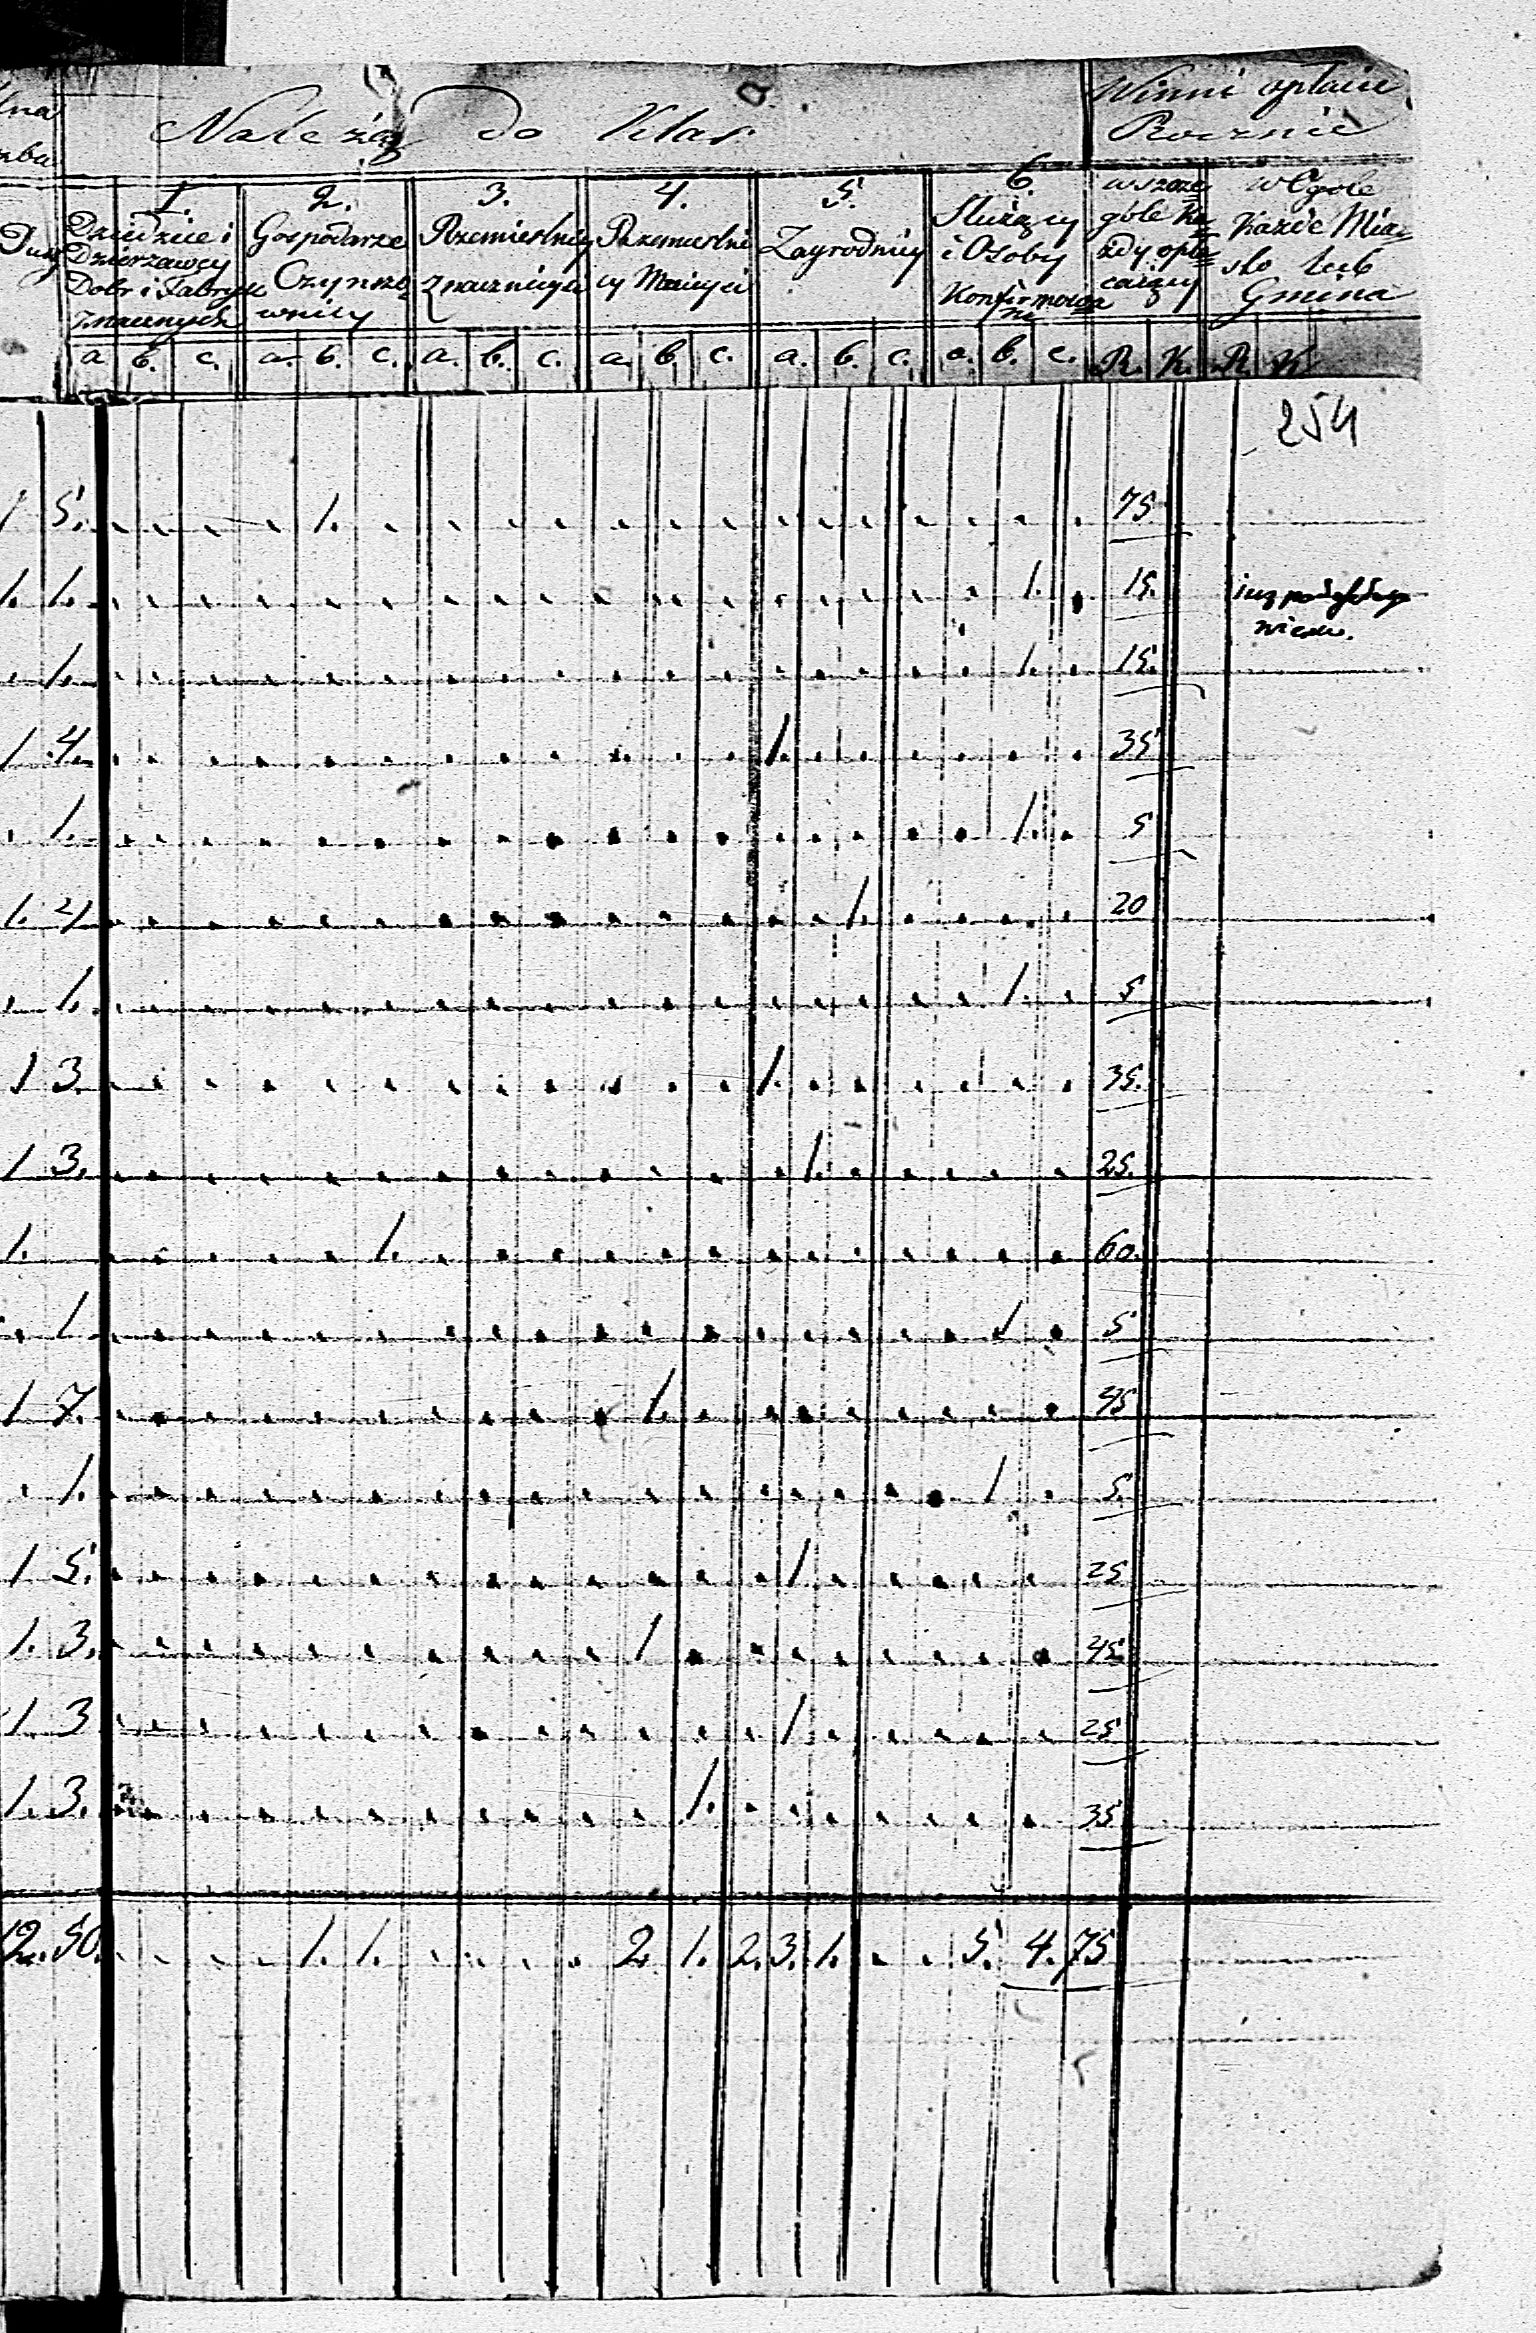 Należą do Klas
Winni opłacić
Rocznie
1. 2. 3. 4. 5. 6.
Dziedzice i
Dzierżawcy
Dobr i Fabryk
znacznych
Gospodarze
Czynszo
wnicy
Rzemieślnicy
znaczniejsi
Rzemieślni
cy Mniejsi
Zagrodnicy
Służący
i Osoby
Konfirmowa
ni
w szcze
góle ka
żdy opła
caiący
w Ogole
Każde Mia
sto lub
Gmina
a b. c. a. b. c. a. b. c. a. b c. a. b. c. a. b. c. R. K. R. K
254
1 5. 1. 75
1. 1. 1. 15.
już
1. 1. 15.
1 4. 1. 35
1. 1. 5
1. 2 1. 20
1. 1. 5
1 3 1. 35.
1 3. 1. 25.
1. 1. 60.
1 1 5
1 7. 1. 45
1. 1 5.
1 5. 1 25
1. 3. 1 45
1 3 1 25
1. 3. 1. 35
12. 50. 1. 1. 2 1. 2. 3. 1. 5. 4. 75